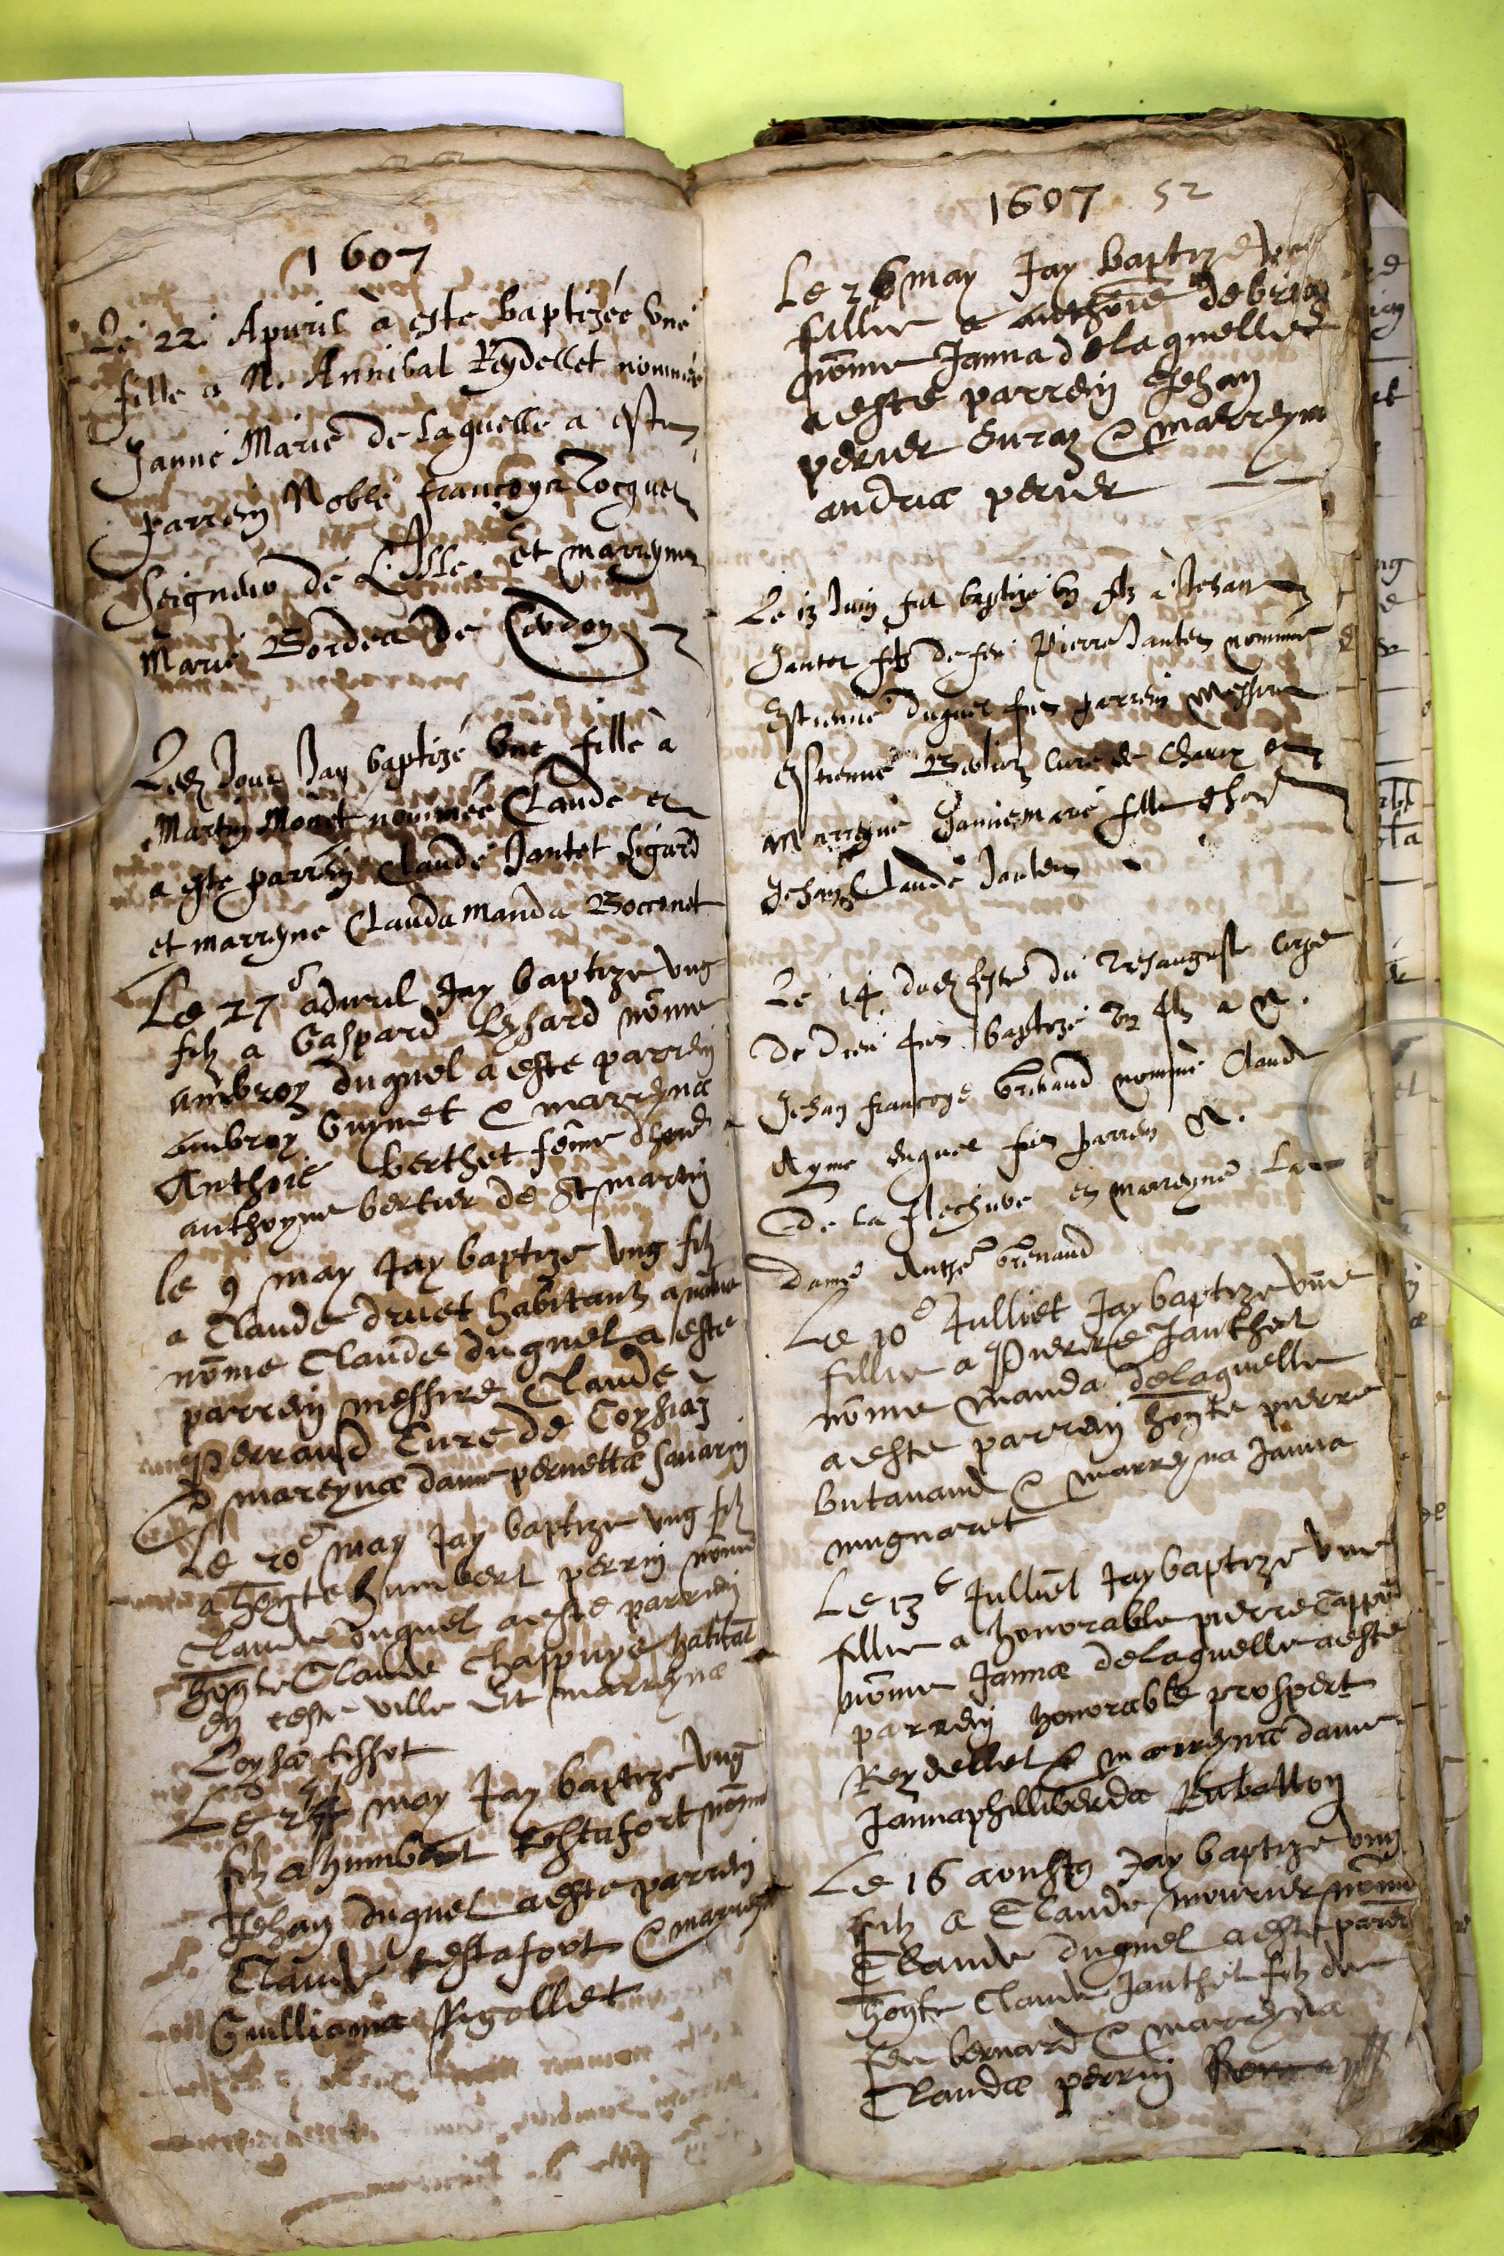 1607
Le 22 Apuril à esté baptizée une
fille a N. Annibal Reydellet nommée
Janne Marie de laquelle a esté
parrein Noble françoys Tocquet
Seigneur de L'Isle. et marreyne
Marie Bordea de Cerdon
Led Jour Jay baptizé une fille à
Martin Monet nommée Claude et
a esté parrein Claude Jantet Sigard
et marreyne Clauda Manda Boccenet
Le 27e aduril Jay baptize ung
filz a Gaspard Lysard nõme
ambroy duquel a este parrein
ambroy Guynet & marreyna
Anthoie berthet fẽme dhon
anthoyne bertier de St martin
le 9 may Jay baptize ung filz
a Claude druet habitant a
nõme Claude duquel a este
parrein messire Claude
Perraud Cure de Coysiaz
& mareyna dame pernetta sauarin
Le 20e may Jay baptize ung filz
a honte humbert perrin nõme
Claude duquel a este parrein
honte Claude Chaspuye habitãt
en ceste ville Et marreyna
Loysa tissot
Le may Jay baptize ung
filz a humbert testafort nõme
Jehan duquel a este parrein
Claude testafort & marreyna
Guilliama Rigollet
1607 52
Le 26 may Jay baptize une
fillie a anthoie debrion
nõme Janna de laquelle
a este parrein Jehan
perier & marreyne
andrea perier
Le 13 Juin fut baptizé un filz à Jehan
Jantet filz de feu Pierre Jantet nommé
Estienne duquel fut parrein Messire
Estienne curé de et
Marreyne Janne Marie fille dhon
Jehan Claude Jantet
Le 14 dud feste du Tresauguste corps
de Dieu fut baptizé un filz a N.
Jehan françoys brenaud nommé Claude
Ayme duquel fut parrein N.
De la flechere et marreyne La
dame brenaud
Le 10e Julliet Jay baptize une
fillie a Pierre Janthet
nõme manda de laquelle
a este parrein honte pierre
butauand & marreyna Janna
mugnaret
Le 13e Julliet Jay baptize une
fillie a honorable pierre
nõme Janna de laquelle a este
parrein honorable prospert
Reydellet & marreyna dame
Janna philliberda Rubatton
Le 16 aoust Jay baptize ung
filz a Claude mourier nõme
Claude duquel a este parrein
honte Claude Janthet filz de
feu bernard & marreyna
Clauda perrin